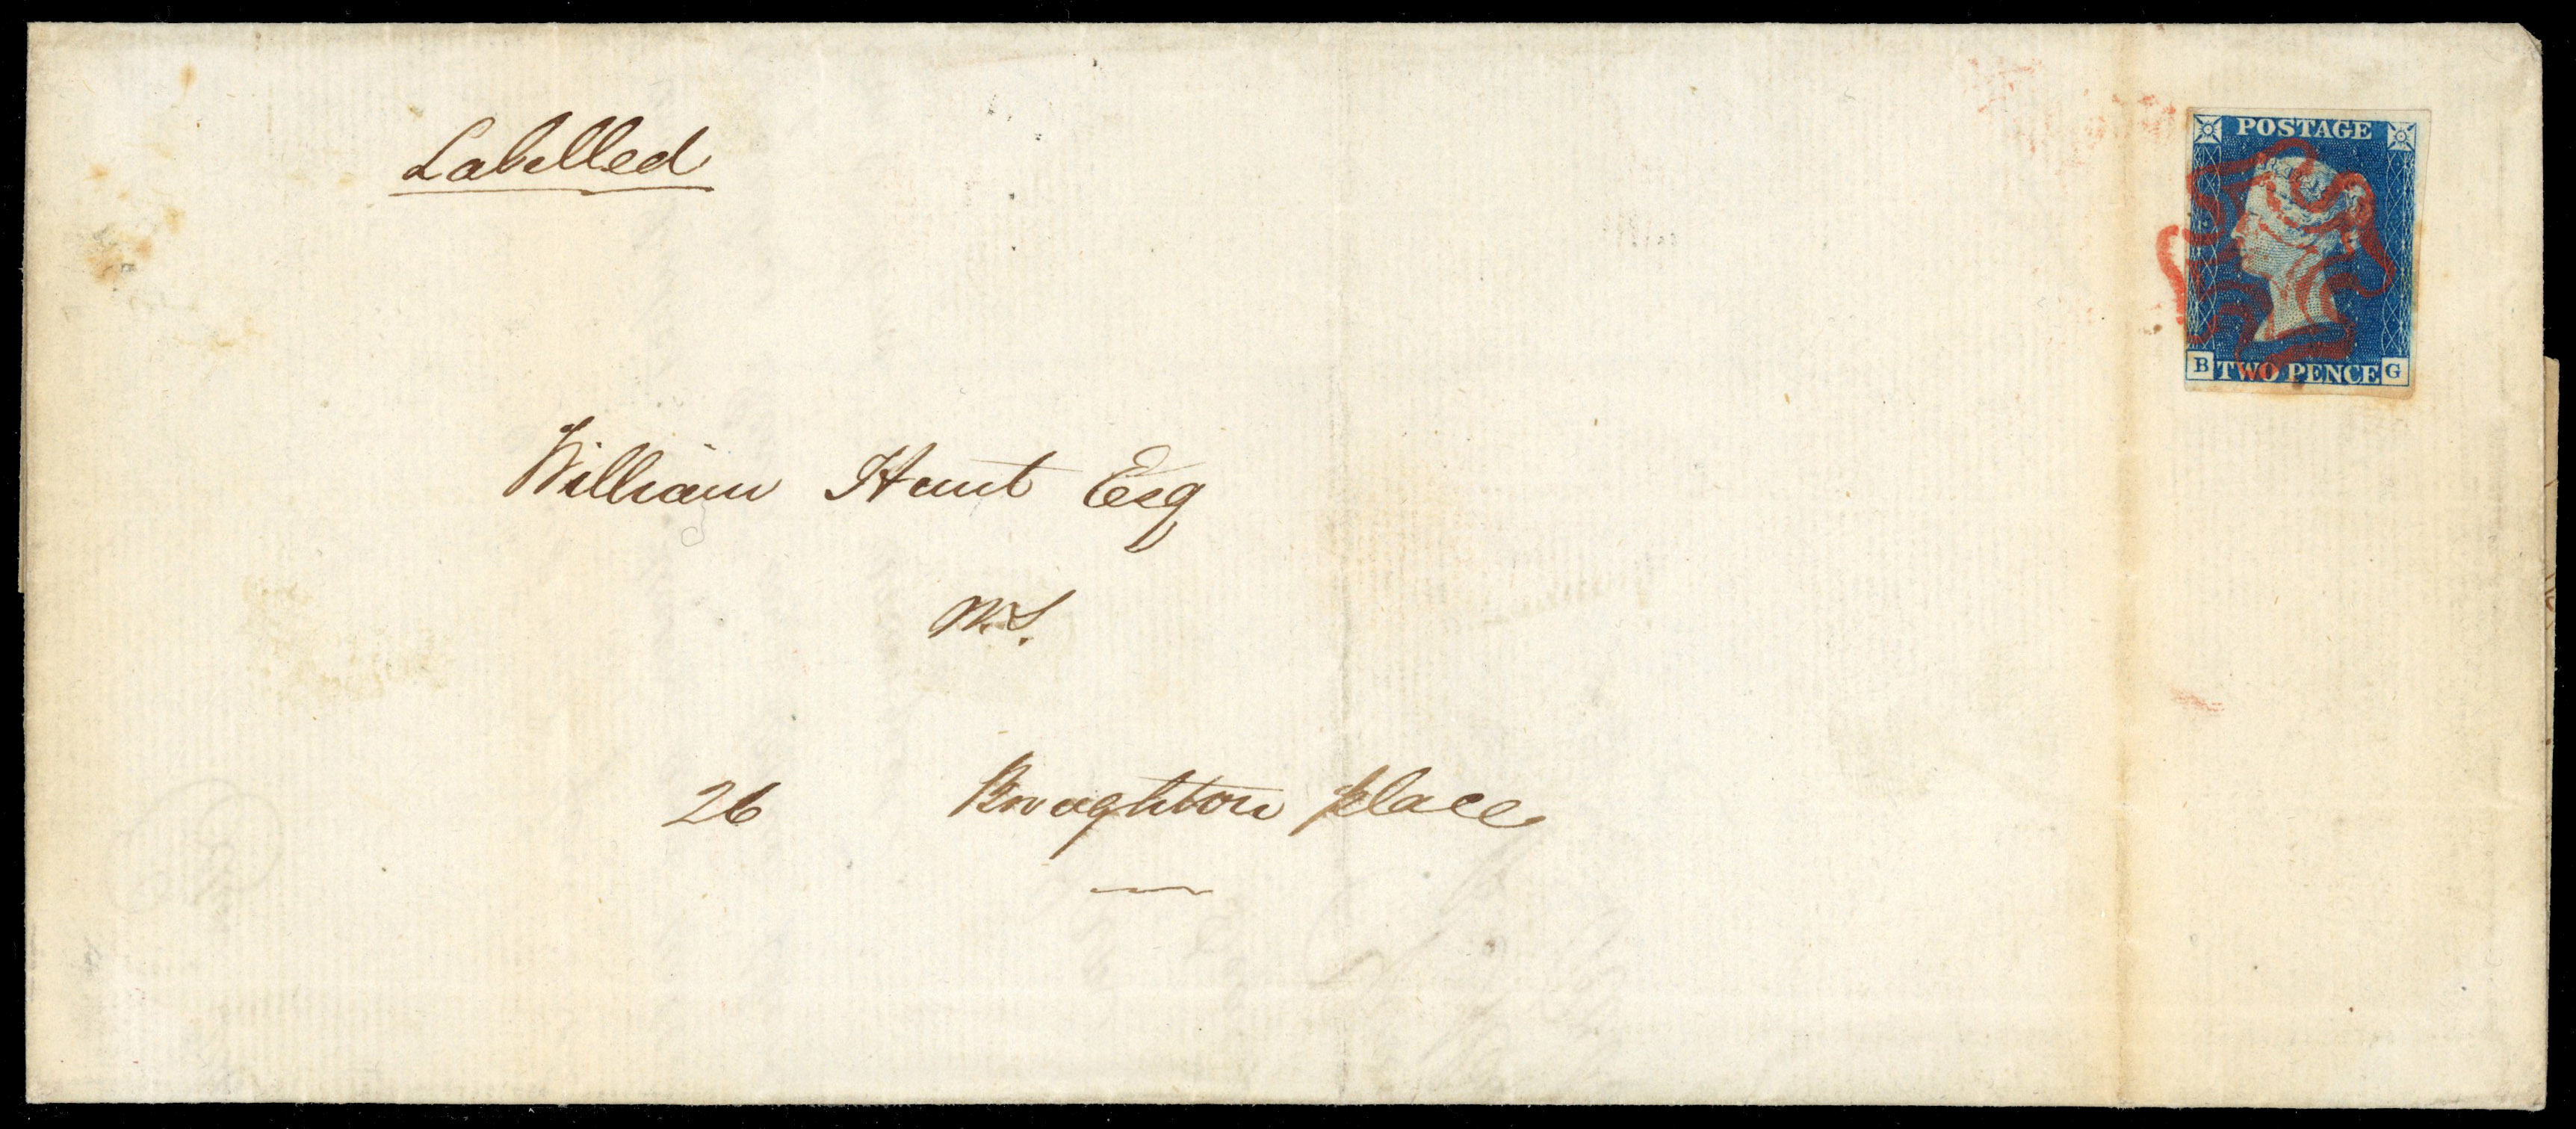 Labelled
POSTAGE
B TWO PENCE G
William Hunt Esq
W.S.
26 Broughton place